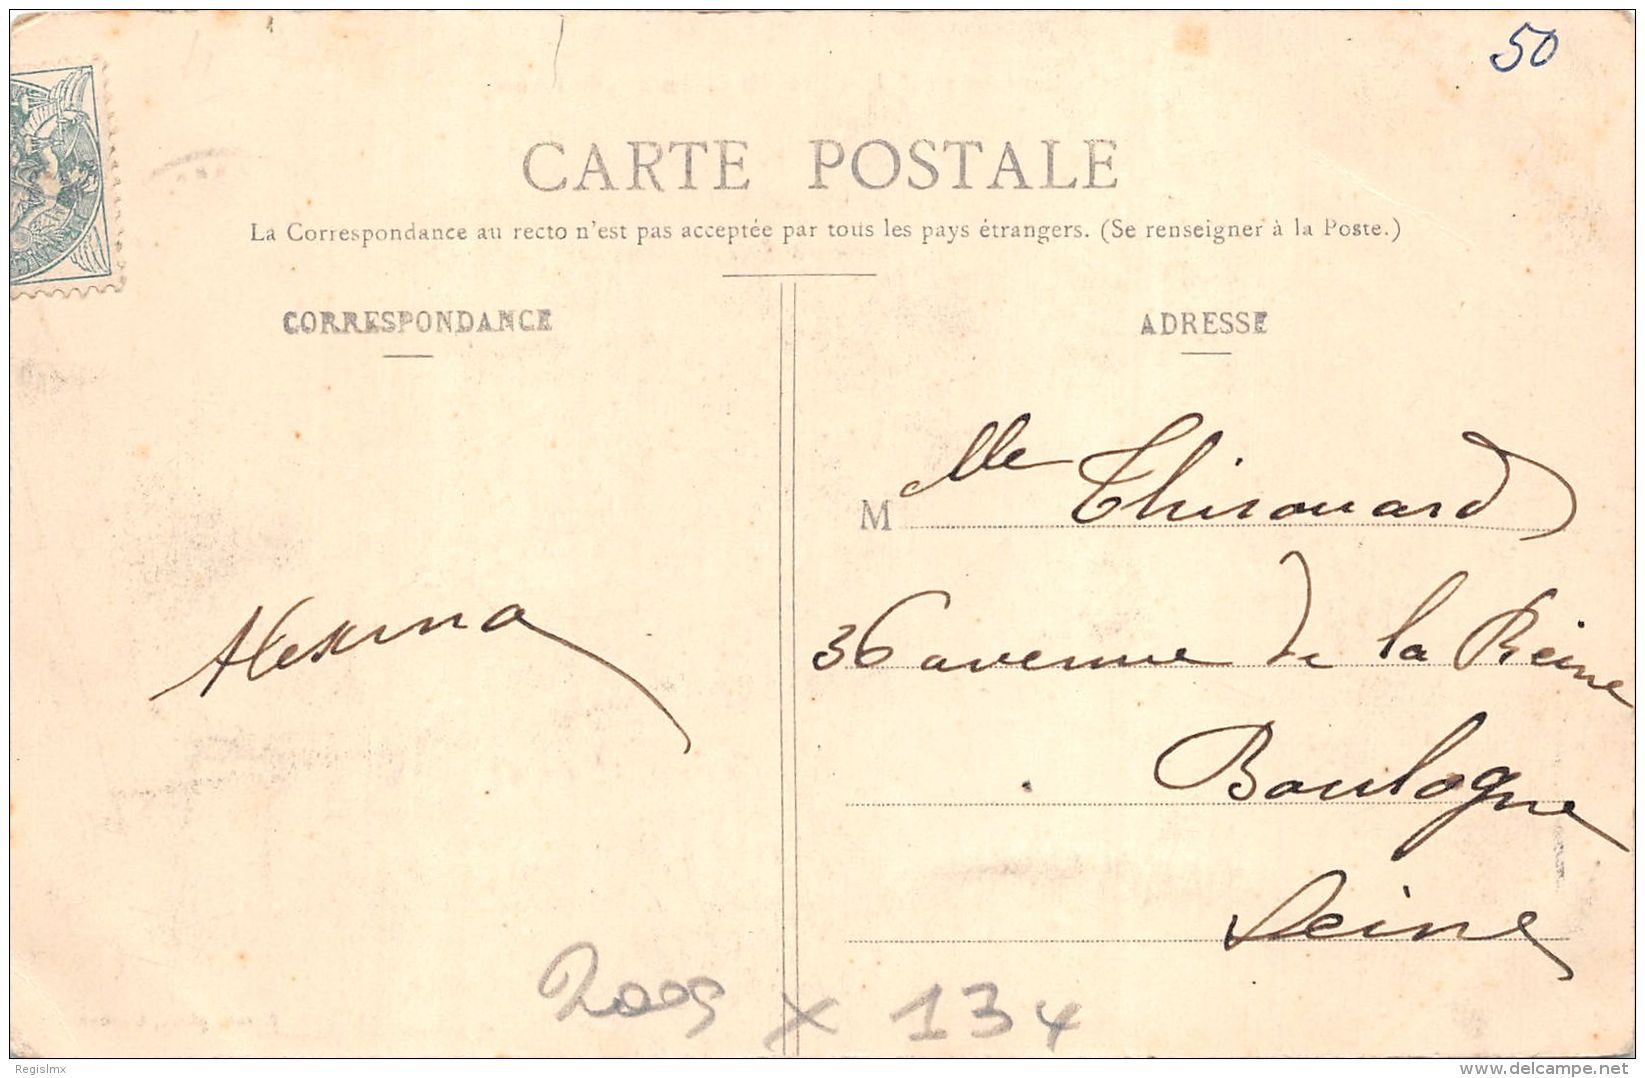 50
CARTE POSTALE
La Correspondance au recto n'est pas acceptée par tous les pays étrangers. (Se renseigner à la Poste.)
CORRESPONDANCE
ADRESSE
Mlle Thirouard
36 avenue de la Reine
Boulogne
Seine
Alexina
x 134
Regislmx
delcampe.net